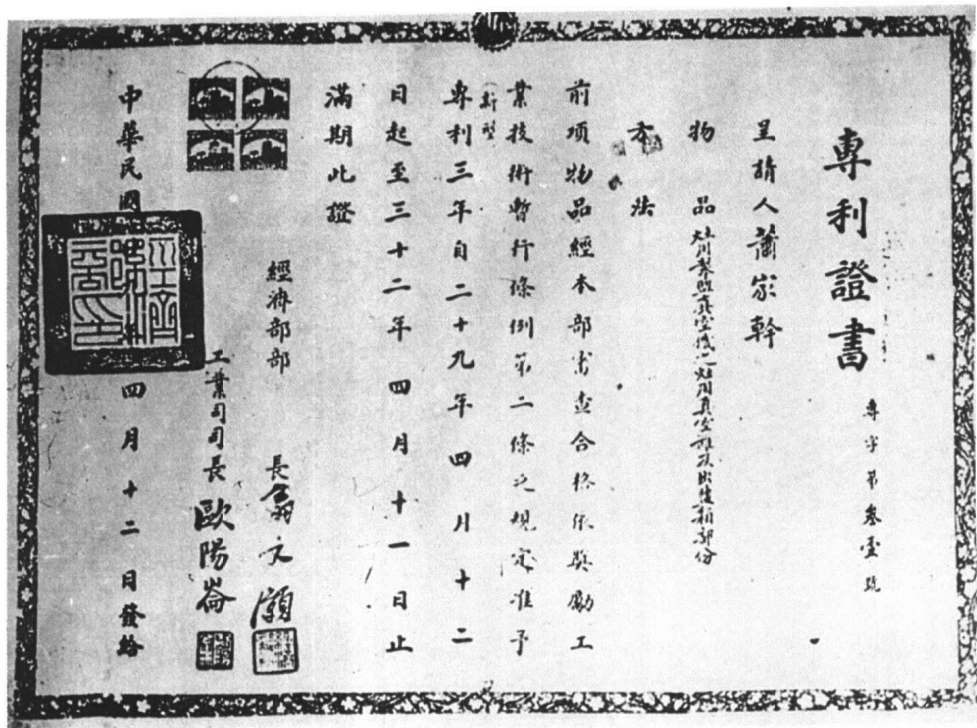 專利證書
專字第叁壹號
呈請人蕭家幹
物品
方法
前項物品經本部審查合格依獎勵工
業技術暫行條例第二條之規定准予
(新型)
專利三年自二十九年四月十二
日起至三十二年四月十一日止
滿期此證
經濟部部長翁文灝
工業司司長歐陽崙
中華民國
四月十二日發給